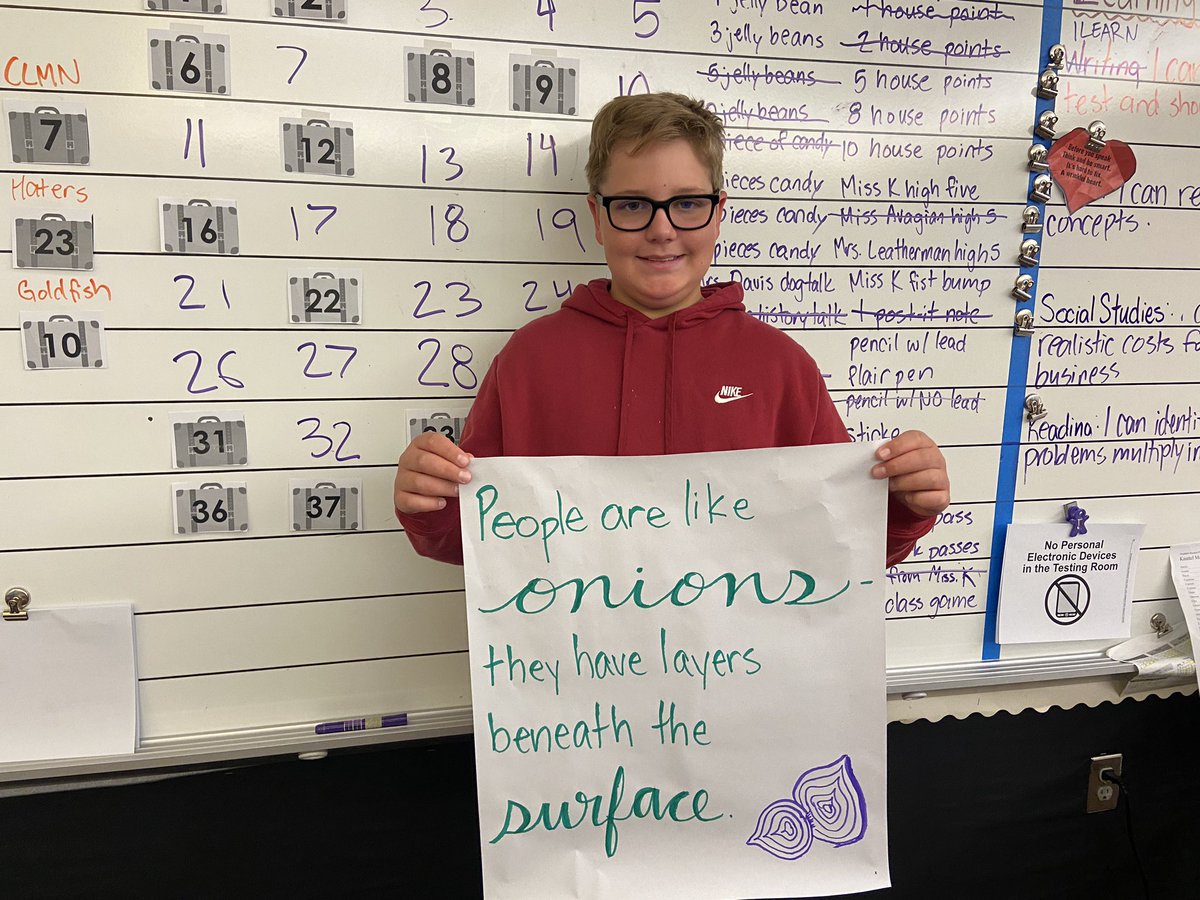 3.
4
5
6
7
8
9
10
CLMN
7
11
12
13
14
Haters
23
16
17
18
19
Goldfish
21
22
23
24
10
26
27
28
31
32
36
37
jelly bean 1 house point
3 jelly beans 2 house points
5 jelly beans 5 house points
jelly beans 8 house points
piece of candy 10 house points
pieces candy Miss K high five
pieces candy Miss Avagian high 5
pieces candy Mrs. Leatherman high 5
Davis dog talk Miss K fist bump
history talk 1 post-it note
pencil w/ lead
flair pen
pencil w/ NO lead
pass
passes
from Miss. K
class game
Learning
I LEARN
Writing I can
test and
Before you speak
Think and be smart.
It's hard to fix
A wrinkled heart.
can
concepts.
Social Studies:
realistic costs
business
Reading: I can
problems multiply
No Personal
Electronic Devices
in the Testing Room
NIKE
People are like
onions -
they have layers
beneath the
surface.